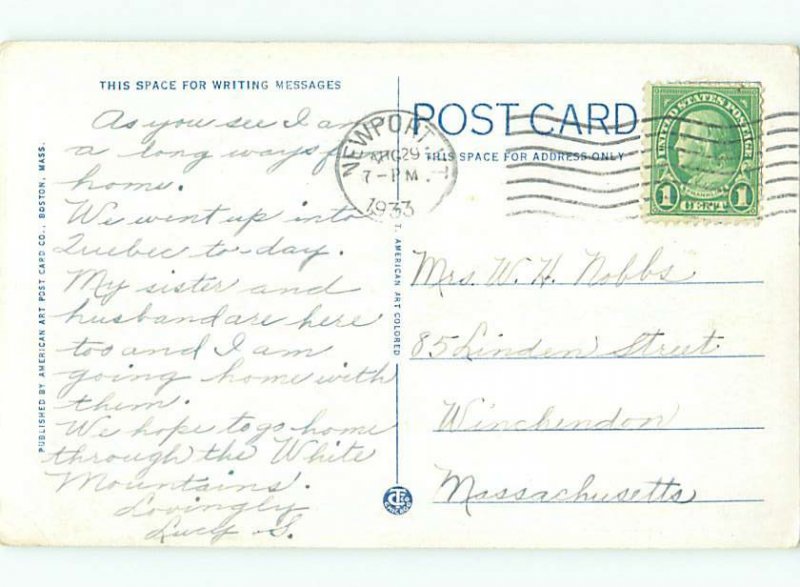 THIS SPACE FOR WRITING MESSAGES
As you see I am
a long ways from
home.
We went up into
Quebec to-day.
My sister and
husband are here
too and I am
going home with
them.
We hope to go home
through the White
Mountains.
Lovingly
Lucy S.
PUBLISHED BY AMERICAN ART POST CARD CO., BOSTON, MASS.
AMERICAN ART COLORED
NEWPORT
AUG 29
7-PM
1933
POST CARD
THIS SPACE FOR ADDRESS ONLY
UNITED STATES POSTAGE
FRANKLIN
1 CENT 1
Mrs. W. H. Nobbs
85 Linden Street
Winchendon
Massachusetts